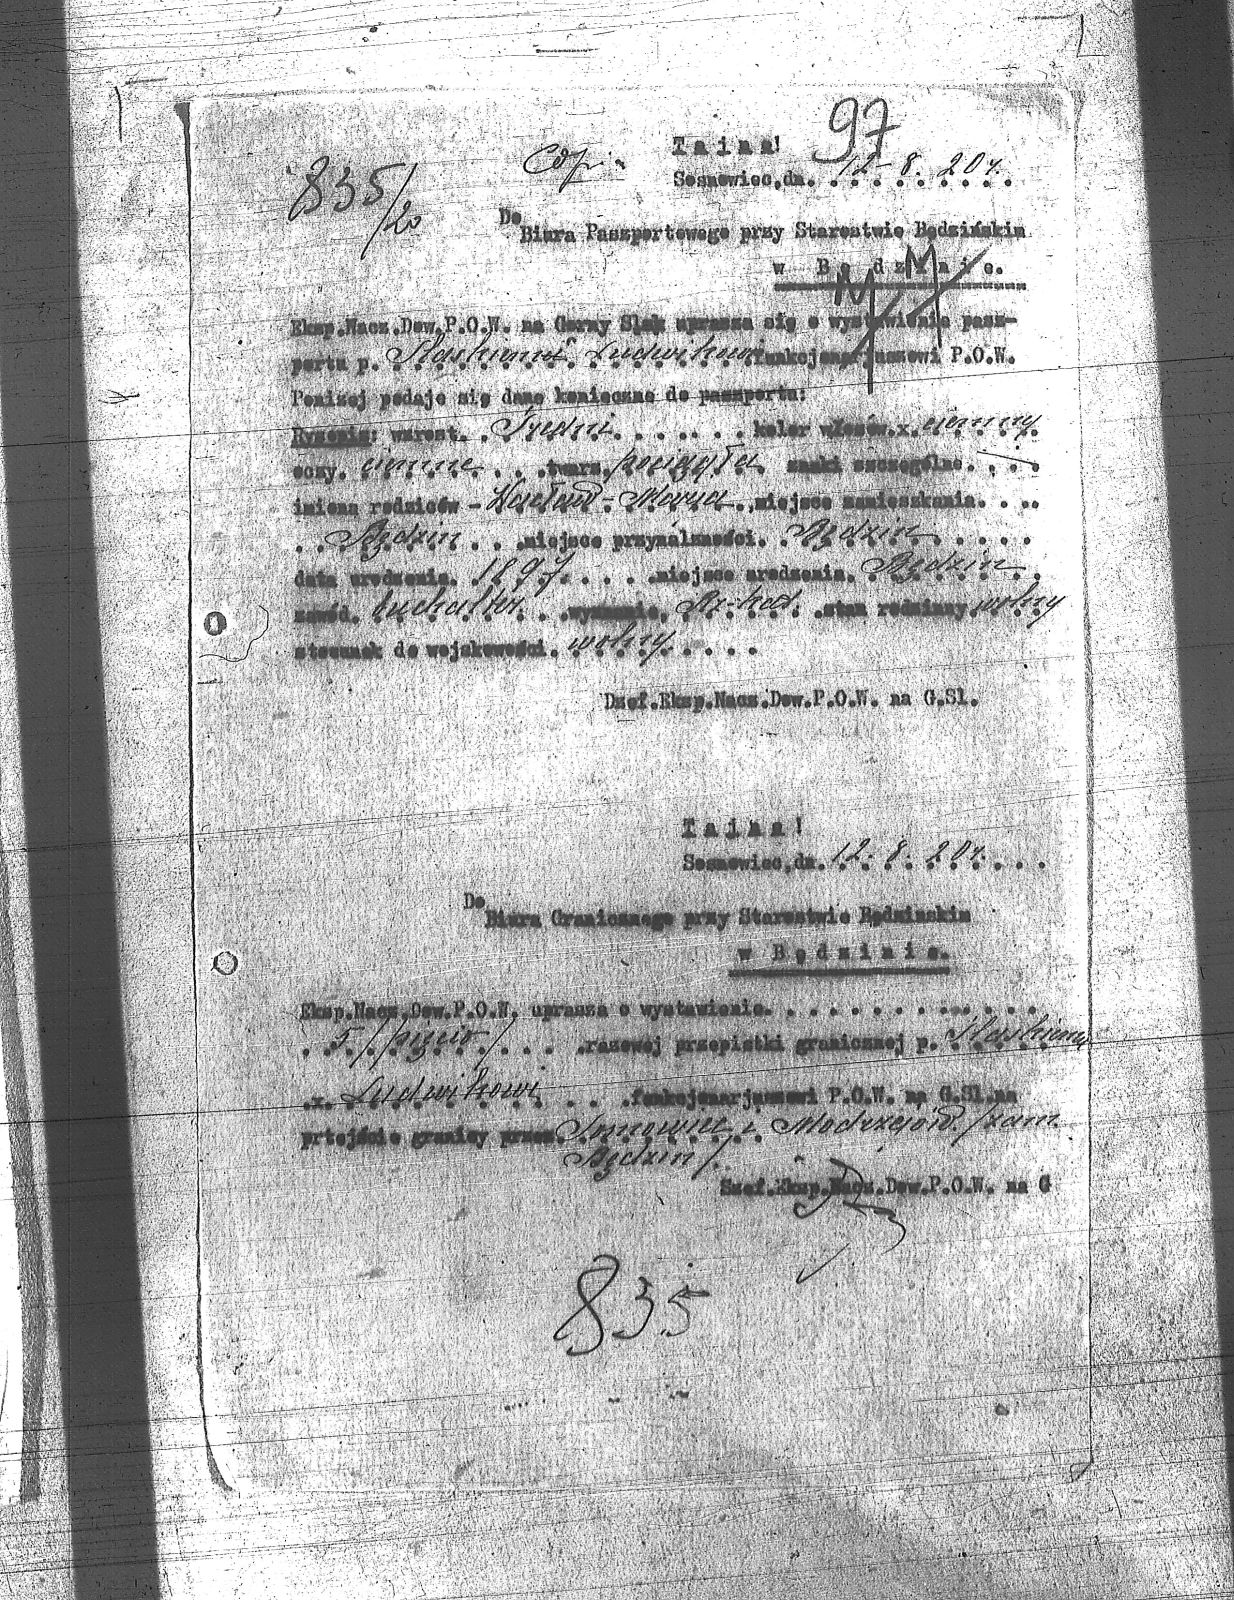 97
T a j n a!
835/20 Odp.
Sosnowiec,dn. 12-8. 20r.
Do
Biura Paszportowego przy Starostwie Będzińskim
w B ę d z i n i e.
Eksp.Nacz.Dow.P.O.W. na Gorny Sląk uprasza się o wystawienie pasz-
portu p. Ludwikowi funkcjonarjuszowi P.O.W.
Ponizej podaje się dane konieczne do paszportu:
Rysopis: wzrost. Średni kolor włosów.x. ciemny
oczy. ciemne twarz. pociągła znaki szczególne. —
imiona rodziców - Marya miejsce zamieszkania.
Będzin miejsce przynależności. Będzin
data urodzenia. 1897 miejsce urodzenia. Będzin
zawód. buchalter wyznanie. Rz-kat. stan rodzinny wolny
stosunek do wojskowości. wolny
Dzef.Eksp.Nacz.Dow.P.O.W. na G.Sl.
T a j n a !
Sosnowiec,dn. 12-8. 20r.
Do
Biura Granicznego przy Starostwie Będzinskim
w B ę d z i n i e.
Eksp.Nacz.Dow.P.O.W. uprasza o wystawienie.
5/pięcio/ .razowej przepistki granicznej p.
.x. Ludwikowi .funkcjonarjuszowi P.O.W. na G.Sl.na
prtejście granicy przez. Sosnowiec i Modrzejów. /zam.
Będzin/.
Szef.Eksp.Nacz.Dow.P.O.W. na G
835